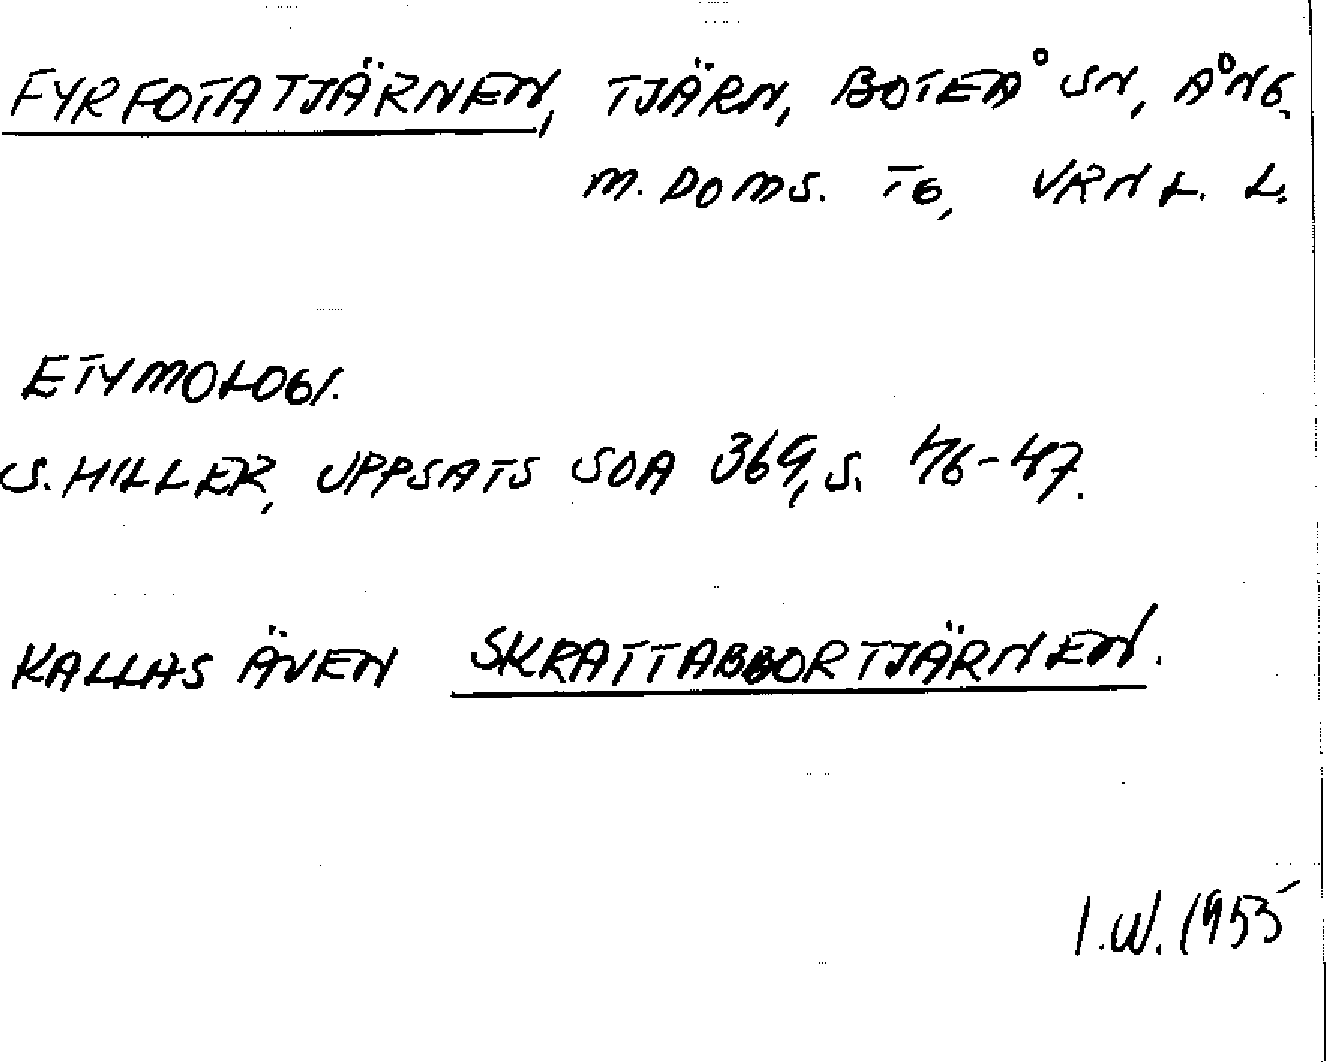 FYRFOTATJÄRNEN, TJÄRN, BOTEÅ SN, ÅNG.
M. DOMS. TG, VRNL. L.
ETYMOLOGI.
S. HILLER, UPPSATS SOA 369, S. 46-47.
KALLAS ÄVEN SKRATTABBORTJÄRNEN.
I.W. 1955